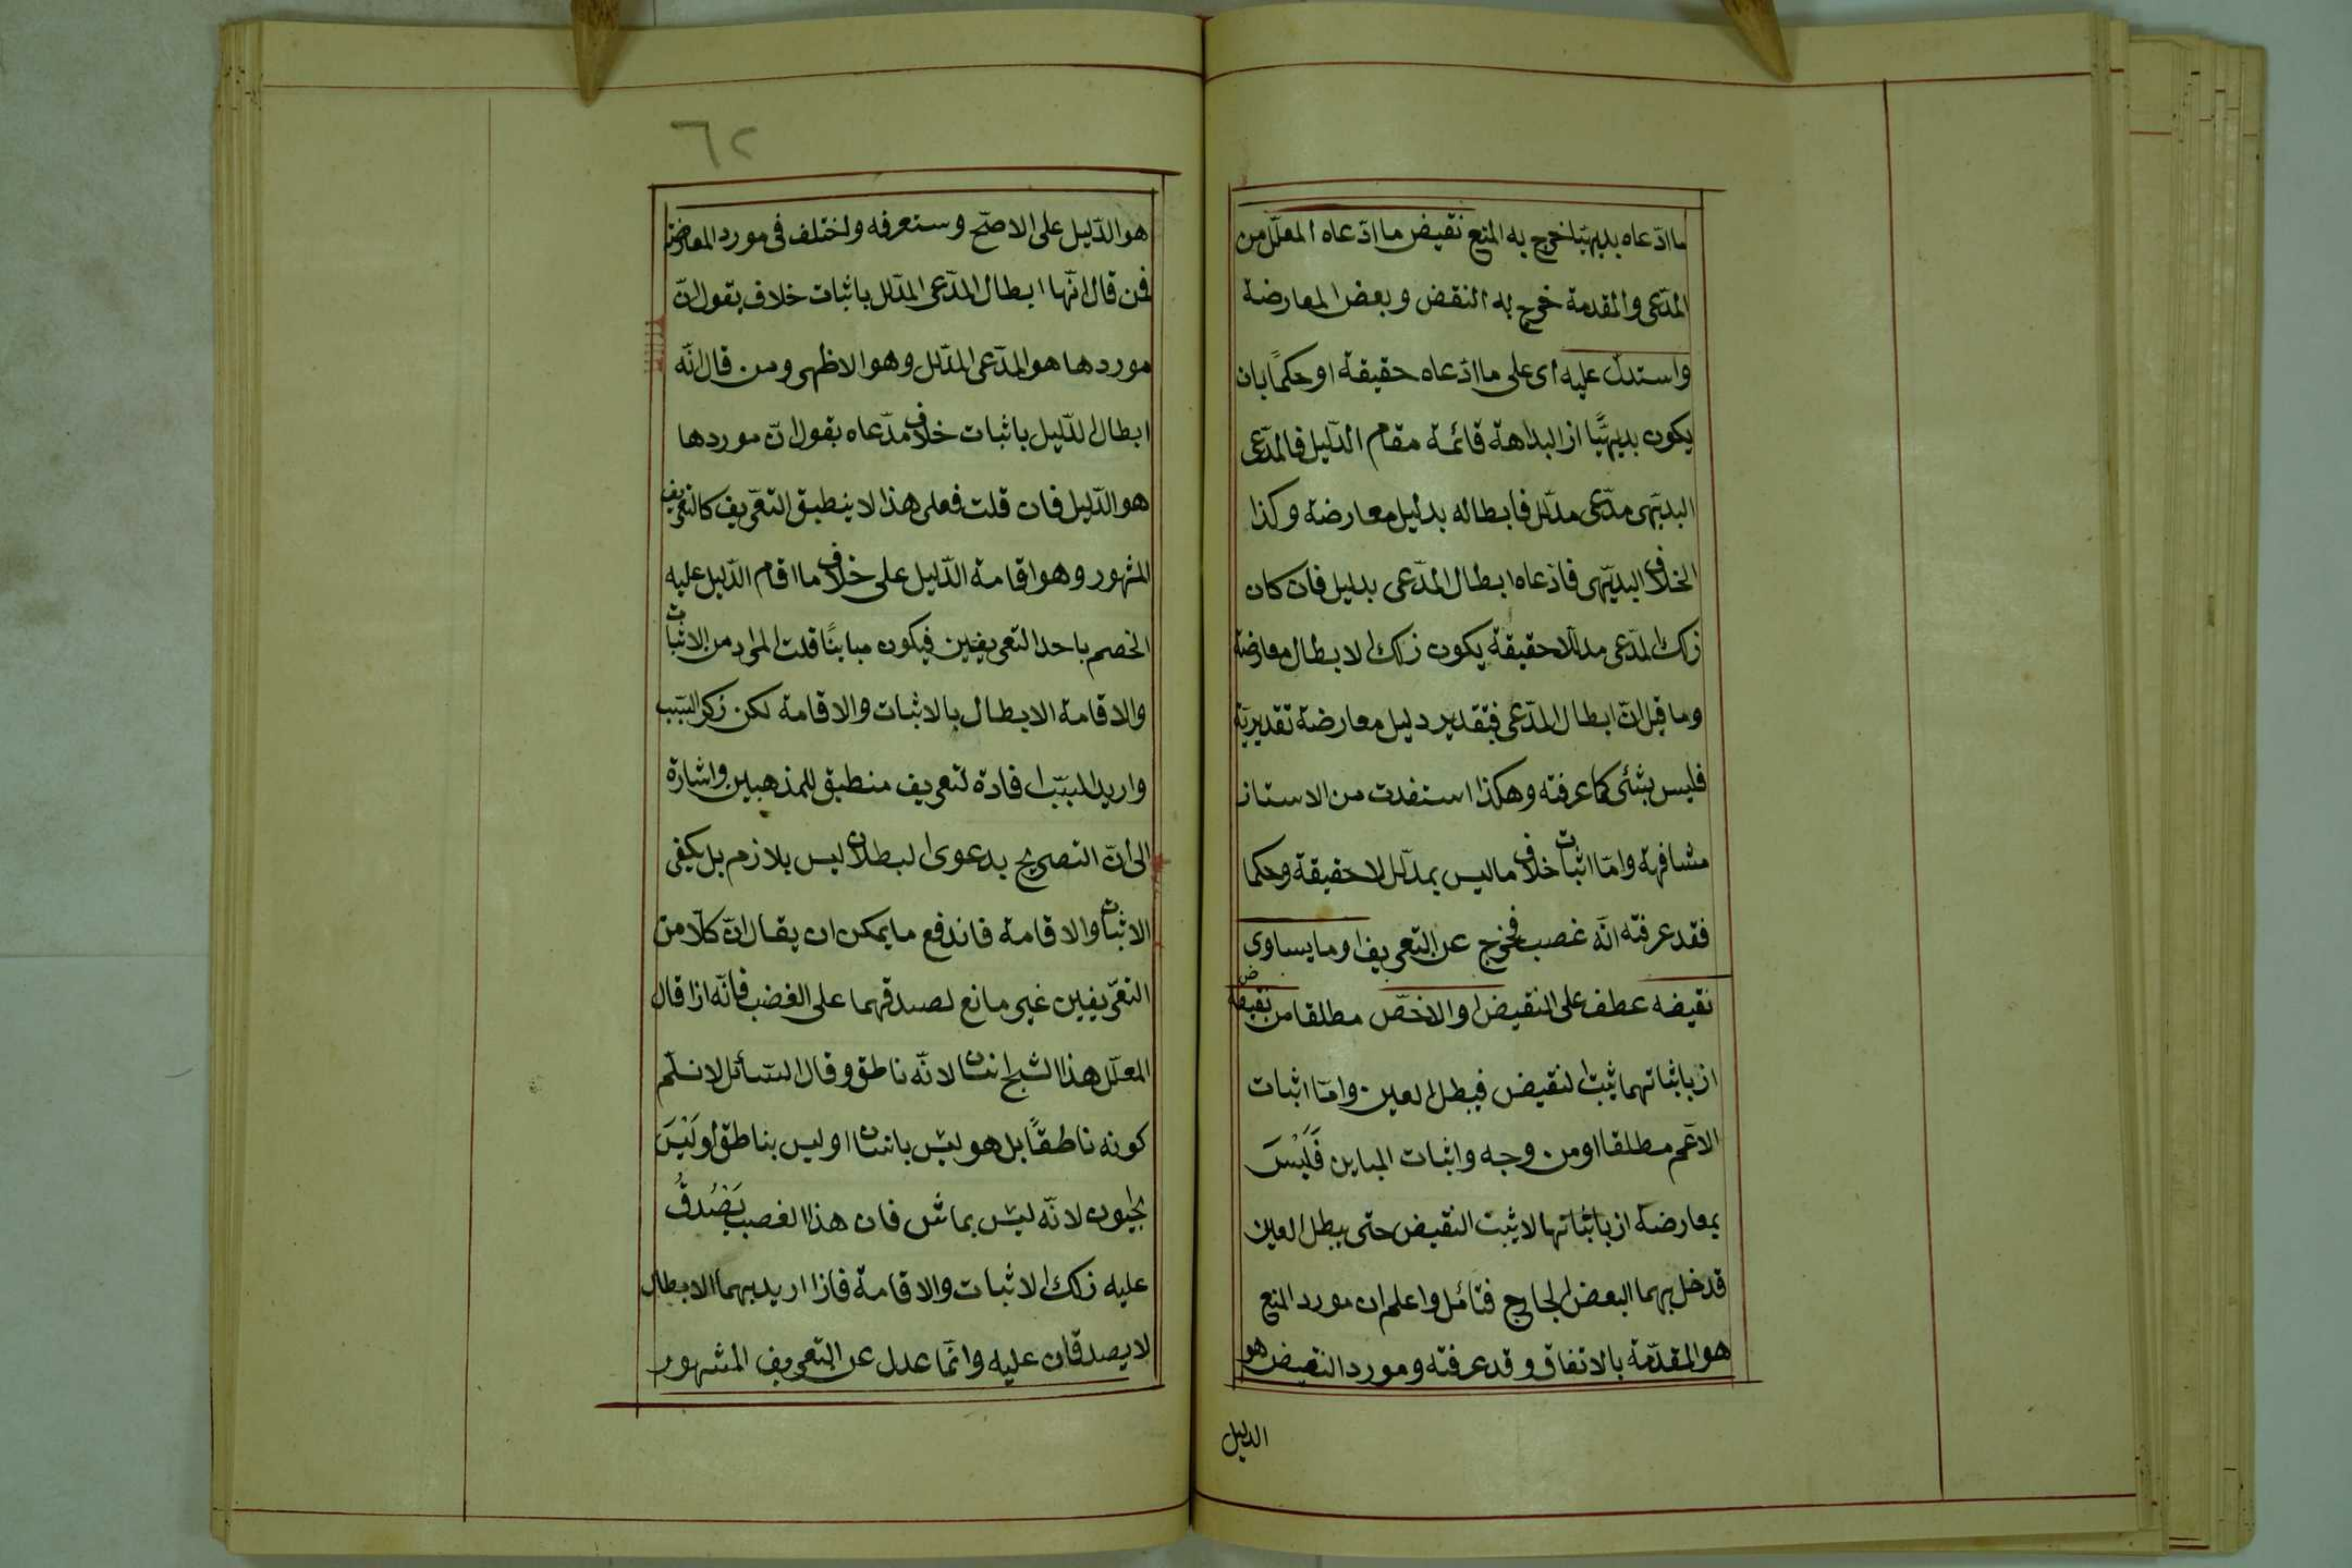 ما ادّعاه بديهيّا خرج به المنع نقيض ما ادّعاه المعلّل من
المدّعى والمقدمة خرج به النقض وبعض المعارضة
واستدلّ عليه اى على ما ادّعاه حقيقة او حكمًا بان
يكون بديهيًّا اذ البداهة قائمة مقام الدّليل فالمدّعى
البديّهى مدّعى مدلّل فابطاله بدليل معارضة وكذا
الخلاف البديّهى فادّعاه ابطال المدّعى بدليل فان كان
ذلك المدّعى مدلّلا حقيقة يكون ذلك الابطال معارضة
وما قيل انّ ابطال المدّعى فبتقدير دليل معارضة تقديريّة
فليس بشئى كما عرفته وهكذا استفدت من الاستاذ
مشافهة وامّا اثبات خلاف ما ليس بمدلّل لا حقيقة وحكما
فقد عرفته انّه غصب فخرج عن التعريف او ما يساوى
نقيضه عطف على النقيض او الاخصّ مطلقا من نقيضه
اذ باثباتهما يثبت النقيض فيبطل العين وامّا اثبات
الاعّم مطلقا او من وجه واثبات المباين فَلَيْسَ
بمعارضة اذ باثباتها لا يثبت النقيض حتى يبطل العين
قد خل بهما البعض الخارج فتأمّل واعلم ان مورد المنع
هو المقدّمة بالاتفاق وقد عرفته ومورد النقيض هو
الدليل
٦٢
هو الدّليل على الاصحّ وستعرفه واختلف فى مورد المعارضة
فمن قال انّها ابطال المدّعى المدلّل باثبات خلاف يقول انّ
موردها هو المدّعى المدلّل وهو الاظهر ومن قال انّه
ابطال الدّليل باثبات خلاف مدّعاه يقول انّ موردها
هو الدّليل فان قلت فعلى هذا لا ينطبق التعّريف كالتعريف
المشهور وهو اقامة الدّليل على خلاف ما اقام الدّليل عليه
الخصم باحد التعريفين فيكون مباينًا قلت المراد من الاثبات
والاقامة الابطال بالاثبات والاقامة لكن ذكر السّبب
واريد المسبّب افادة لتعريف منطبق للمذهبين واشارة
الى انّ التصريح بدعوى البطلان ليس بلازم بل يكفى
الاثبات والاقامة فاندفع ما يمكن ان يقال انّ كلّا من
التعّريفين غير مانع لصدقهما على الغضب فانّه اذا قال
المعلّل هذا الشبح انسان لانّه ناطق وقال السّائل لا نسلّم
كونه ناطقًا بل هو ليس بانسان او ليس بناطق او لَيْسَ
بحيوان لانّه ليس بماش فان هذا الغصب يَصْدُقُ
عليه ذلك الاثبات والاقامة فاذا اريد بهما الابطال
لا يصدقان عليه وانّما عدل عن التعريف المشهور